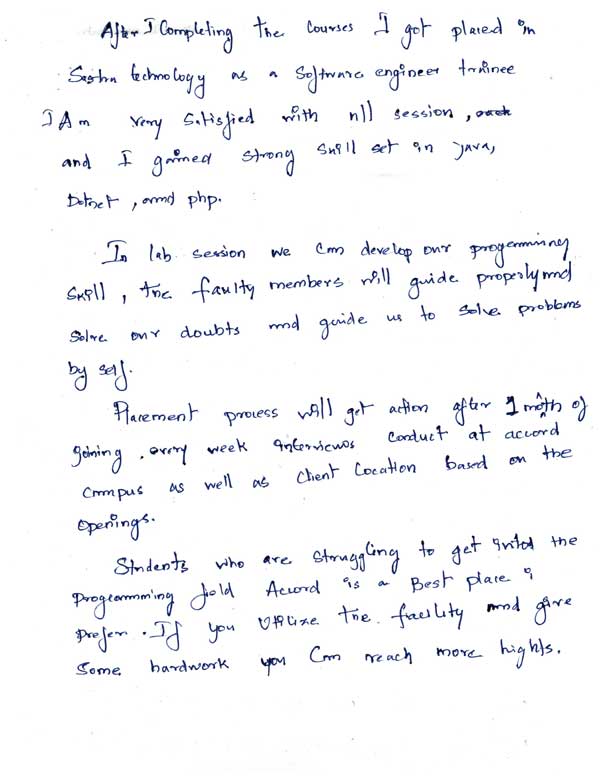 After I Completing the Courses I got placed in
technology as a Software engineer trainee
I Am very Satisfied with all session,
and I gained strong skill set in java,
Dotnet, and php.
In lab session we can develop our progamming
skill, the faulty members will guide properly and
Solve our doubts and guide us to solve problems
by self.
Placement process will get action after 1 month of
joining. every week interviews conduct at accord
Campus as well as Client Location Based on the
openings.
Students who are Struggling to get into the
Programming field Accord is a Best place i
Prefer. If you Utilize the facility and give
Some hardwork you Can reach more highls.